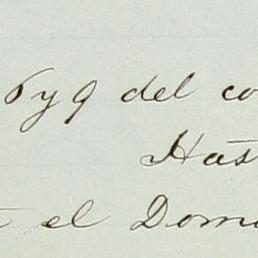 8 y 9 del co
Has
el Dom